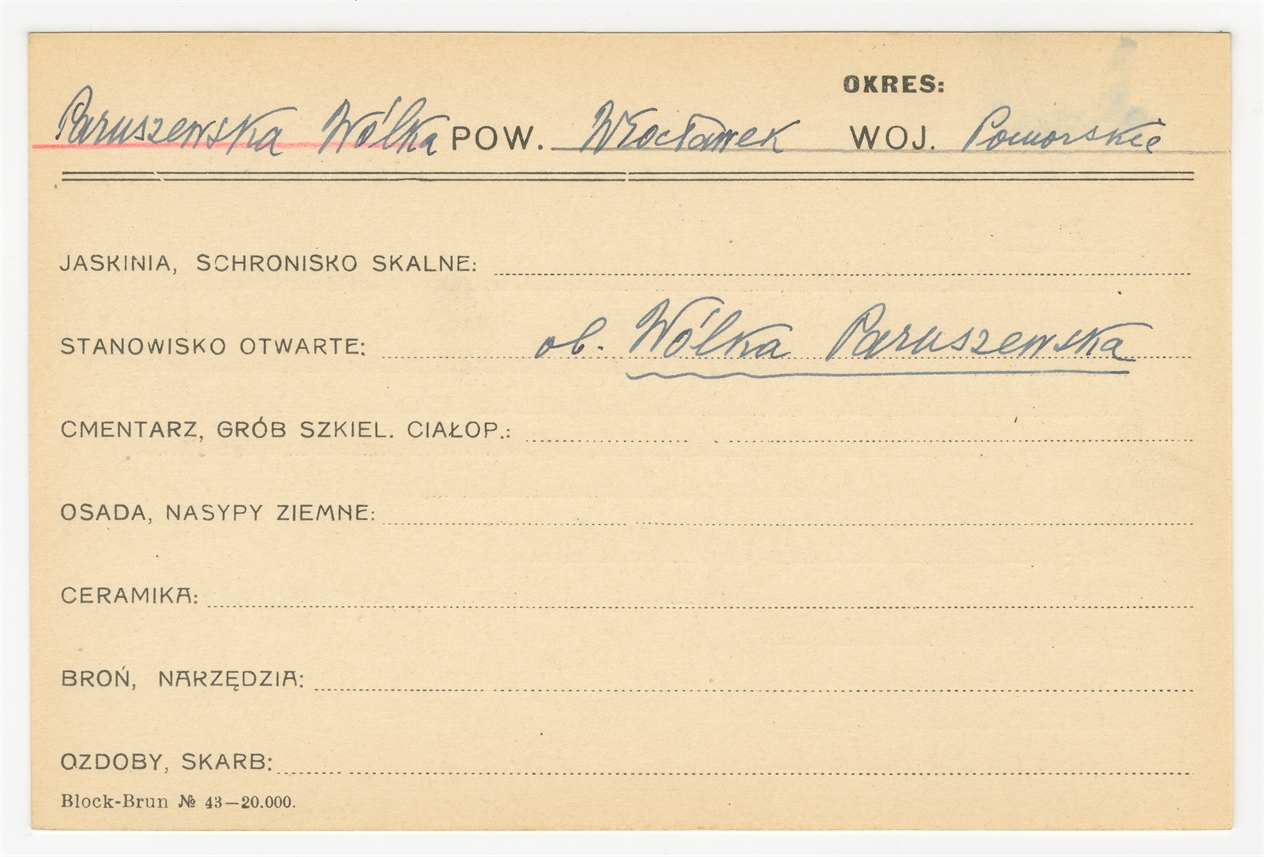 OKRES:
Paruszewska Wólka POW. Włocławek WOJ. Pomorskie
JASKINIA, SCHRONISKO SKALNE:
STANOWISKO OTWARTE: ob. Wólka Paruszewska
CMENTARZ, GRÓB SZKIEL. CIAŁOP.:
OSADA, NASYPY ZIEMNE:
CERAMIKA:
BROŃ, NARZĘDZIA:
OZDOBY, SKARB:
Block-Brun № 43—20.000.